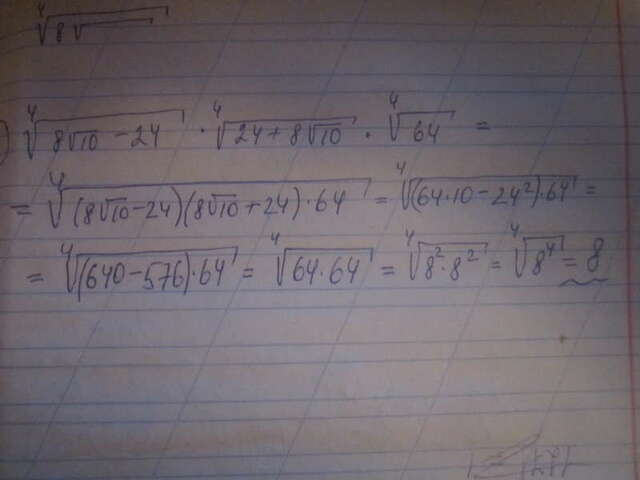 ⁴√8√
) ⁴√(8√10 - 24) · ⁴√(24 + 8√10) · ⁴√64 =
= ⁴√((8√10 - 24)(8√10 + 24) · 64) = ⁴√((64·10 - 24²)64) =
= ⁴√((640 - 576) · 64) = ⁴√(64·64) = ⁴√(8²·8²) = ⁴√(8⁴) = 8